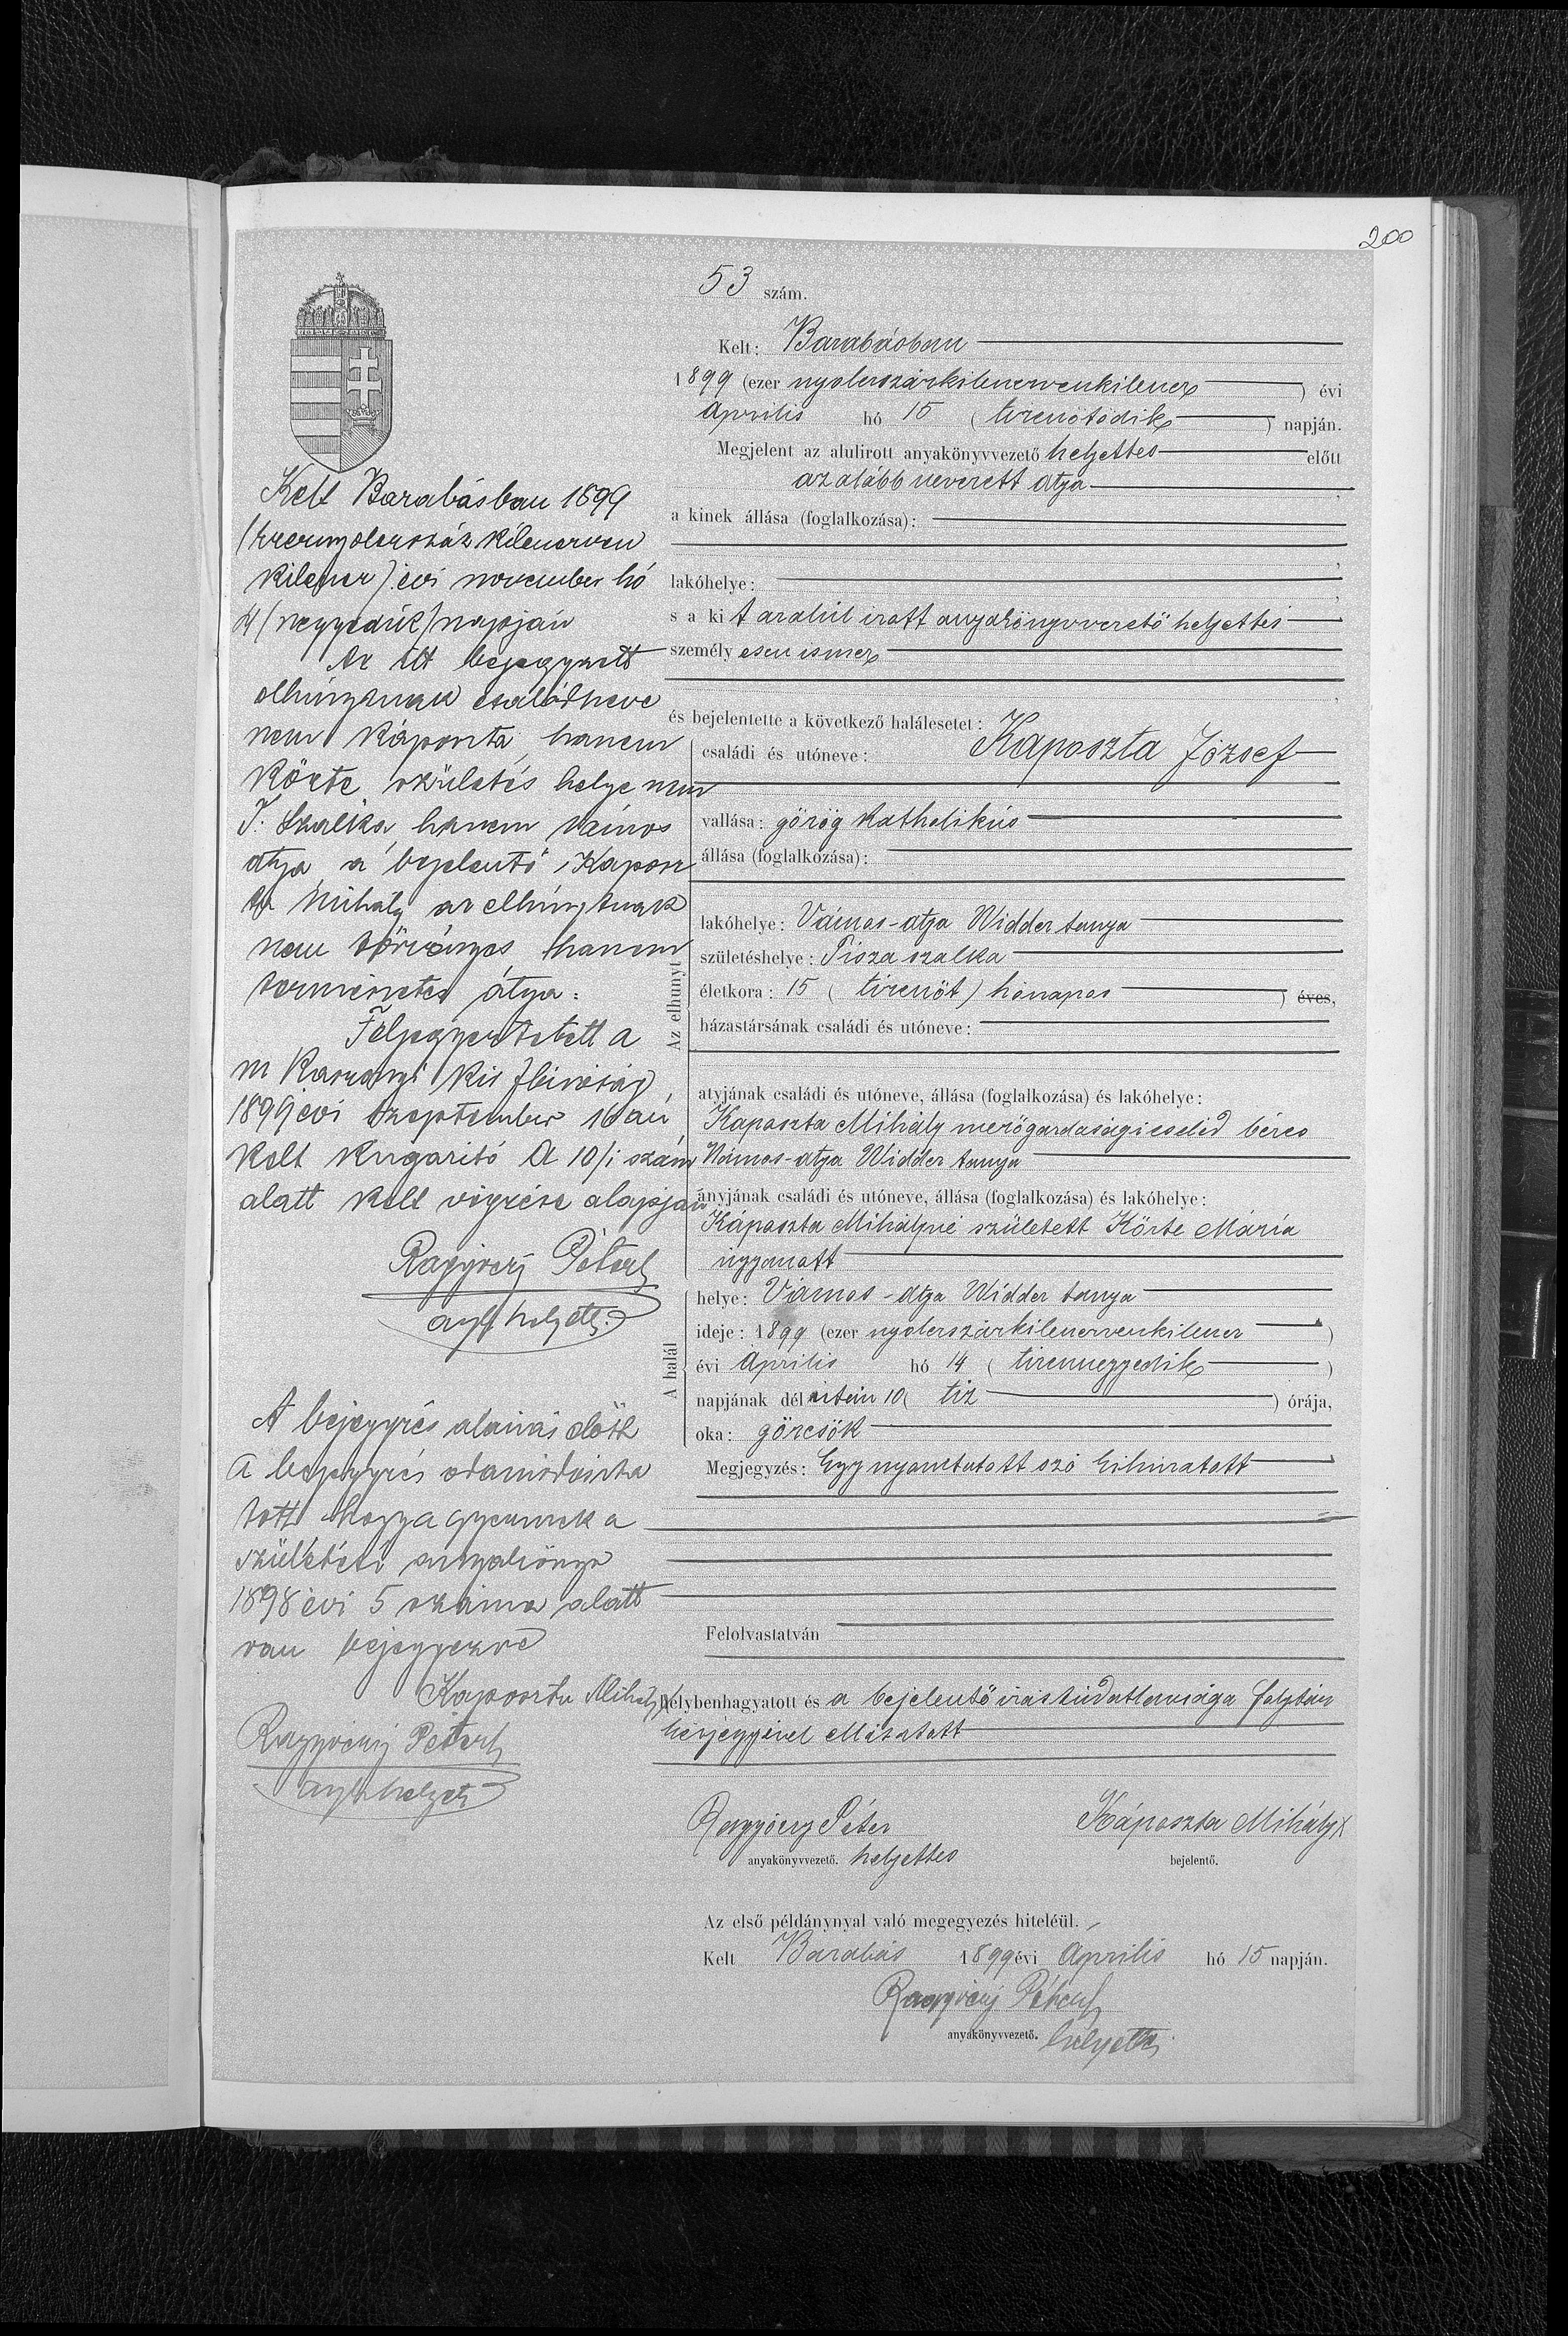 200
53 szám.
Kelt: Barabásban
1899 (ezer nyolczszázkilenczvenkilencz) évi
április hó 15 (tizenötödik) napján.
Megjelent az alulirott anyakönyvvezető helyettes előtt
az alább nevezett atya,
a kinek állása (foglalkozása):
lakóhelye:
s a kit az alúl írott anyakönyvvezető helyettes
személyesen ismer,
és bejelentette a következő halálesetet:
Az elhunyt
családi és utóneve: Káposzta József
vallása: görög katholikús
állása (foglalkozása):
lakóhelye: Vámos-atya Widder tanya
születéshelye: Tisza szalka
életkora: 15 (tizenöt) hónapos) éves,
házastársának családi és utóneve:
atyjának családi és utóneve, állása (foglalkozása) és lakóhelye:
Káposzta Mihály mezőgazdasági cseléd béres
Vámos-atya Widder tanya
anyjának családi és utóneve, állása (foglalkozása) és lakóhelye:
Káposzta Mihályné született Körte Mária
úgyanott
A halál
helye: Vámos-atya Widder tanya
ideje: 1899 (ezer nyolczszázkilenczvenkilencz)
évi április hó 14 (tizennegyedik)
napjának délután 10 (tiz) órája,
oka: görcsök
Megjegyzés: Egy nyomtatott szó kihúzatott
Felolvastatván
helybenhagyatott és a bejelentő írástúdatlansága folytán
kézjegyével elláttatott
Ragyóczy Péter Káposzta Mihály X
anyakönyvvezető. helyettes bejelentő.
Az első példánynyal való megegyezés hiteléül.
Kelt Barabás 1899 évi április hó 15 napján.
Ragyóczy Péter
anyakönyvvezető. helyettes
Kelt Barabásban 1899
(ezernyolczszáz kilenczven
kilencz) évi november hó
4 (negyedik) napján
Az itt bejegyzett
elhúnytnak családneve
nem Káposzta, hanem
Körte születés helye nem
T. Szalka, hanem Vámos
atya, a bejelentő Kaposz
ta Mihály az elhúnytnak
nem törvényes hanem
természetes atya.
Feljegyeztetett a
m Kaszonyi kir. jbíróság
1899 évi szeptember 16 án
kelt kiigazító A 10/1 szám
alatt kelt végzése alapján
Ragyóczy Péter
ayk helyett.
A bejegyzés aláírás előtt
a bejegyzés
hogy a gyermek a
születési anyakönyv
1898 évi 5 száma alatt
van bejegyezve
Kaposzta Mihály X
Ragyóczy Péter
ayk helyett